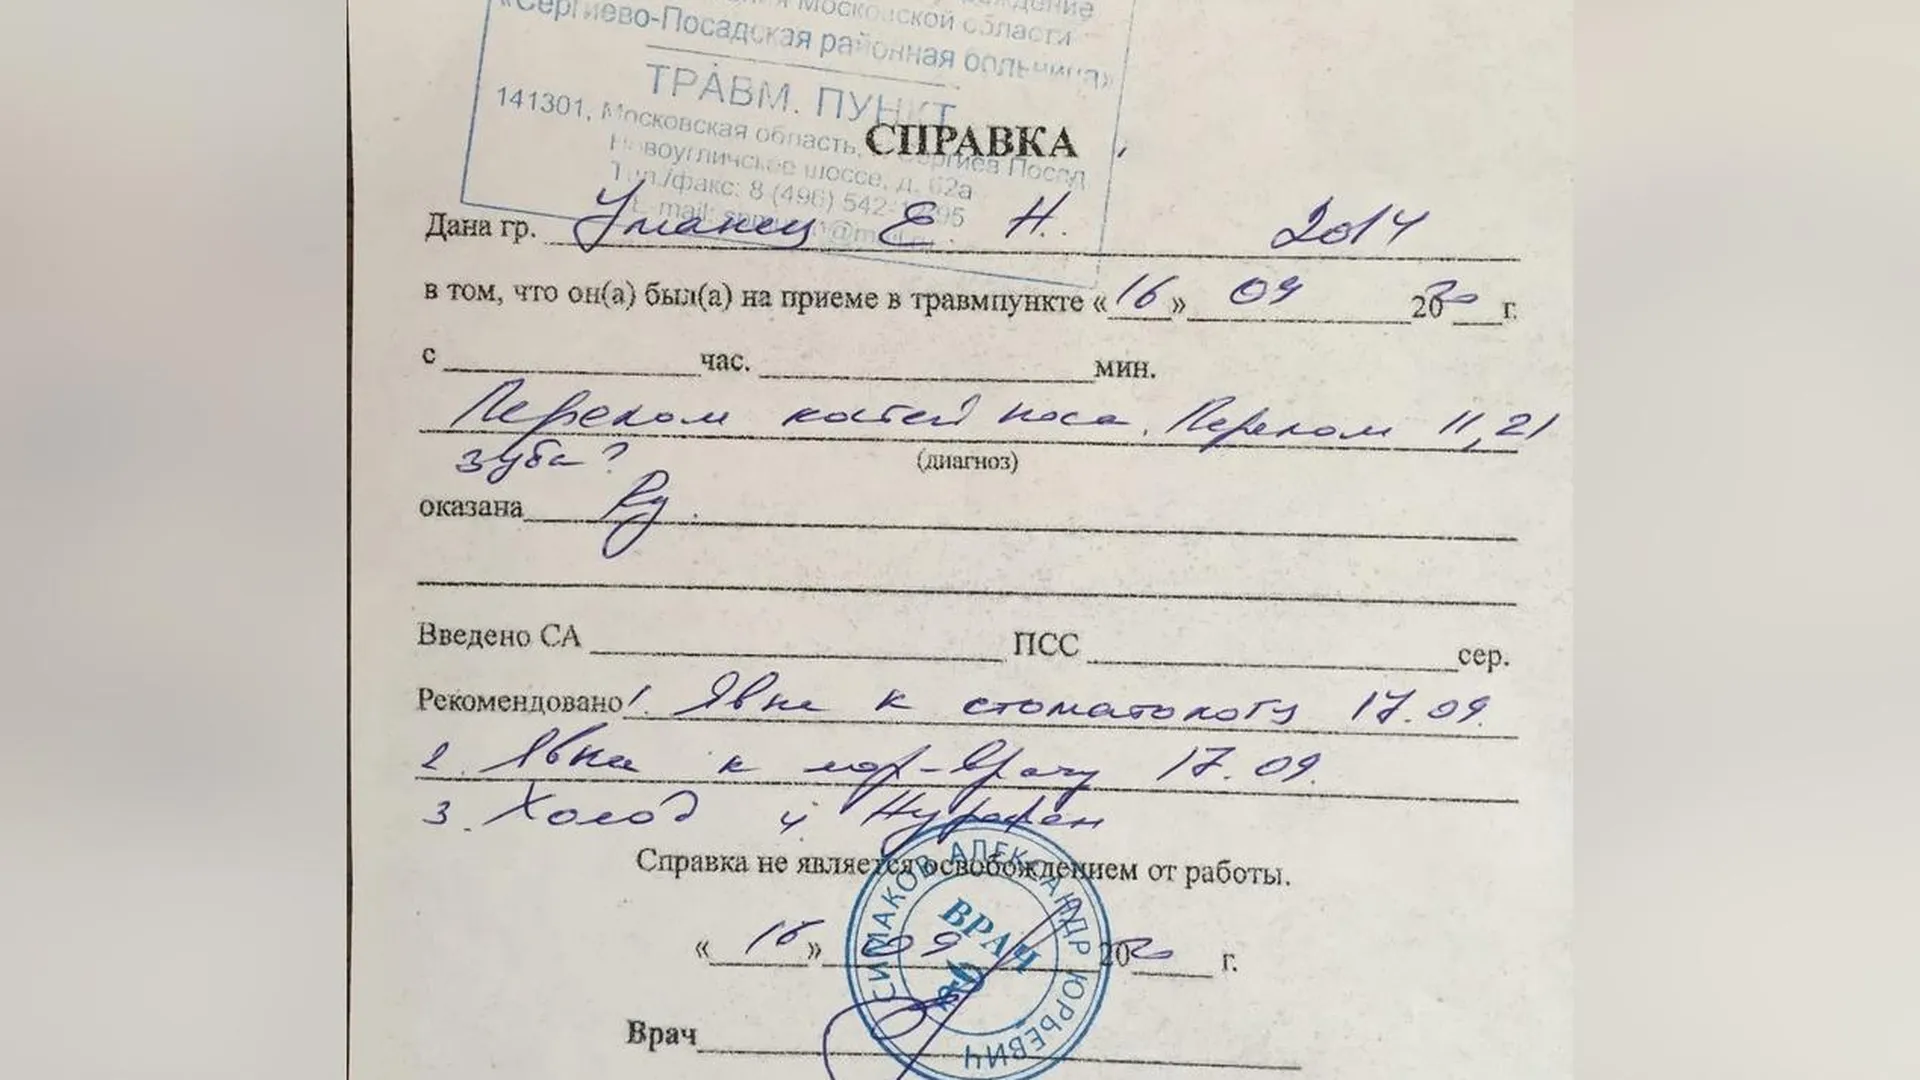 Московской области
«Сергиево-Посадская районная больница»
ТРАВМ. ПУНКТ
141301, Московская область, Сергиев Посад
Новоугличское шоссе, д. 62а
Тел./факс: 8 (496) 542-
E-mail: @mail.ru
СПРАВКА
Дана гр. Уманец Е. Н. 2014
в том, что он(а) был(а) на приеме в травмпункте «16» 09 2020 г.
с час. мин.
Перелом костей носа. Перелом 11, 21
зуба?
(диагноз)
оказана
Введено СА ПСС сер.
Рекомендовано 1. Явка к стоматологу 17.09.
2. Явка к лор-врачу 17.09.
3. Холод 4. Нурофен
Справка не является освобождением от работы.
«16» 09 2020 г.
Врач
СИМАКОВ АЛЕКСАНДР ЮРЬЕВИЧ
ВРАЧ